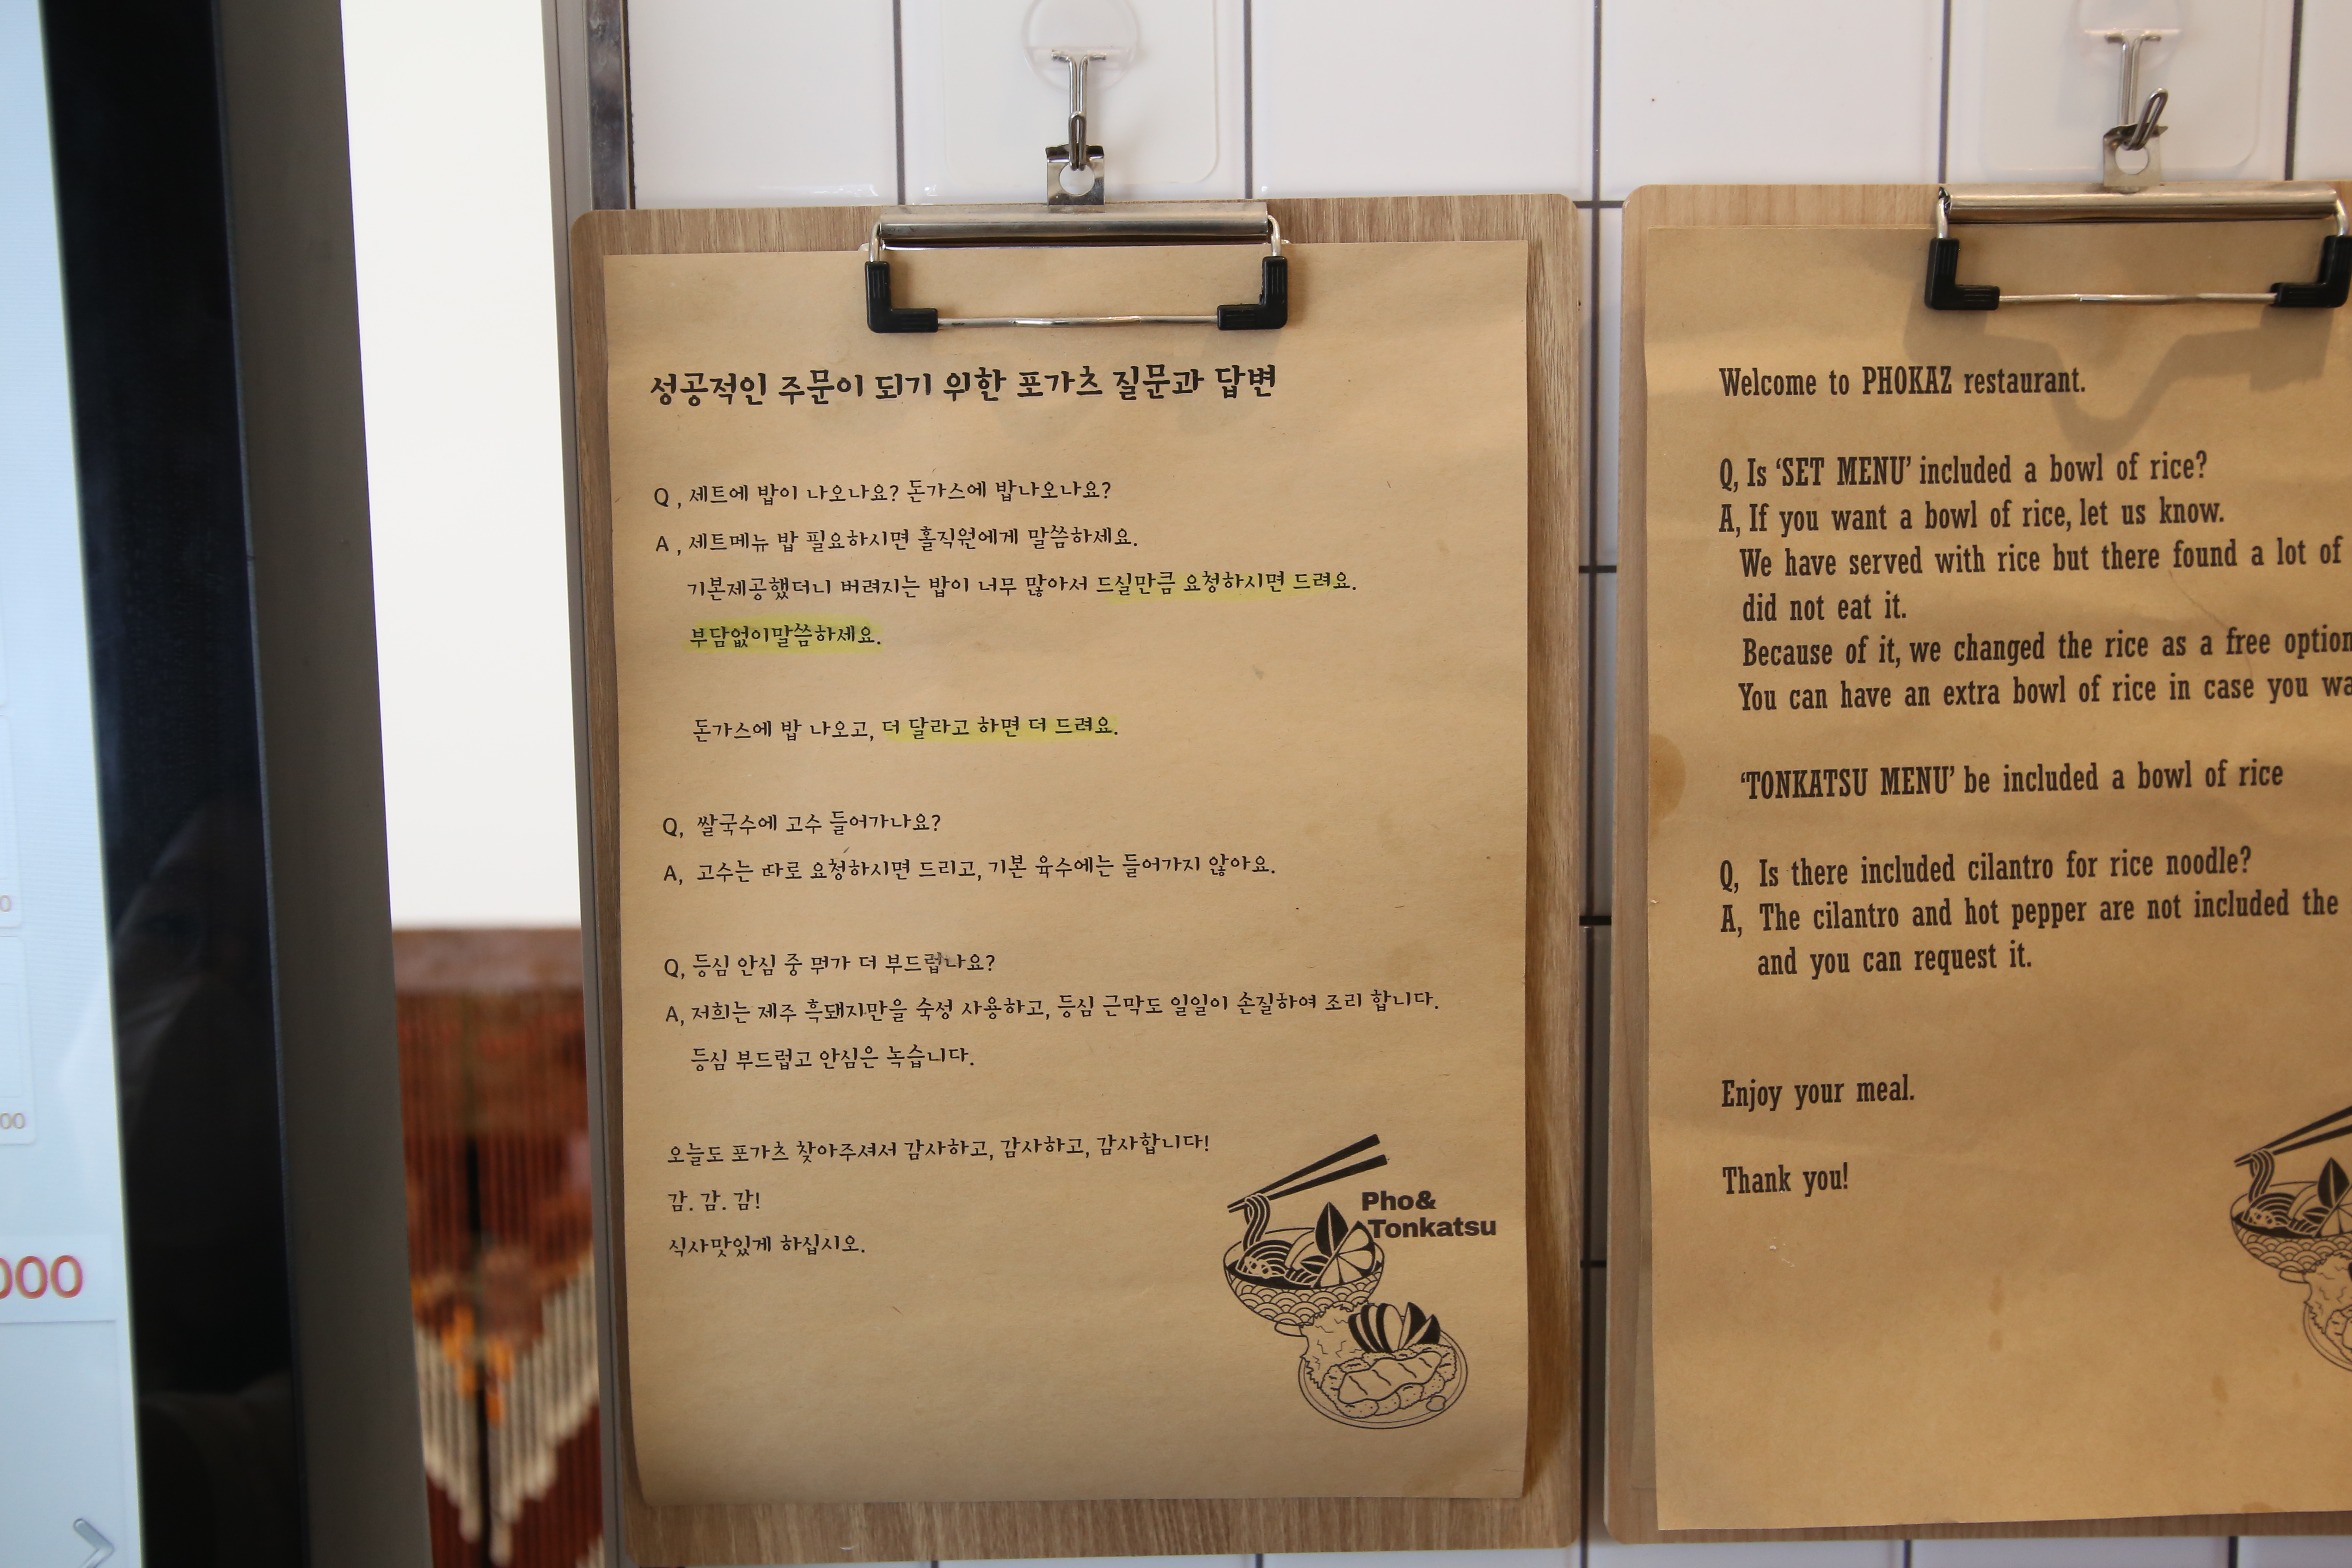 성공적인 주문이 되기 위한 포가츠 질문과 답변
Q , 세트에 밥이 나오나요? 돈가스에 밥나오나요?
A , 세트메뉴 밥 필요하시면 홀직원에게 말씀하세요.
기본제공했더니 버려지는 밥이 너무 많아서 드실만큼 요청하시면 드려요.
부담없이말씀하세요.
돈가스에 밥 나오고, 더 달라고 하면 더 드려요.
Q, 쌀국수에 고수 들어가나요?
A, 고수는 따로 요청하시면 드리고, 기본 육수에는 들어가지 않아요.
Q, 등심 안심 중 뭐가 더 부드럽나요?
A, 저희는 제주 흑돼지만을 숙성 사용하고, 등심 근막도 일일이 손질하여 조리 합니다.
등심 부드럽고 안심은 녹습니다.
오늘도 포가츠 찾아주셔서 감사하고, 감사하고, 감사합니다!
감. 감. 감!
식사맛있게 하십시오.
Pho&
Tonkatsu
Welcome to PHOKAZ restaurant.
Q, Is ‘SET MENU’ included a bowl of rice?
A, If you want a bowl of rice, let us know.
We have served with rice but there found a lot of
did not eat it.
Because of it, we changed the rice as a free option
You can have an extra bowl of rice in case you wa
‘TONKATSU MENU’ be included a bowl of rice
Q, Is there included cilantro for rice noodle?
A, The cilantro and hot pepper are not included the
and you can request it.
Enjoy your meal.
Thank you!
000